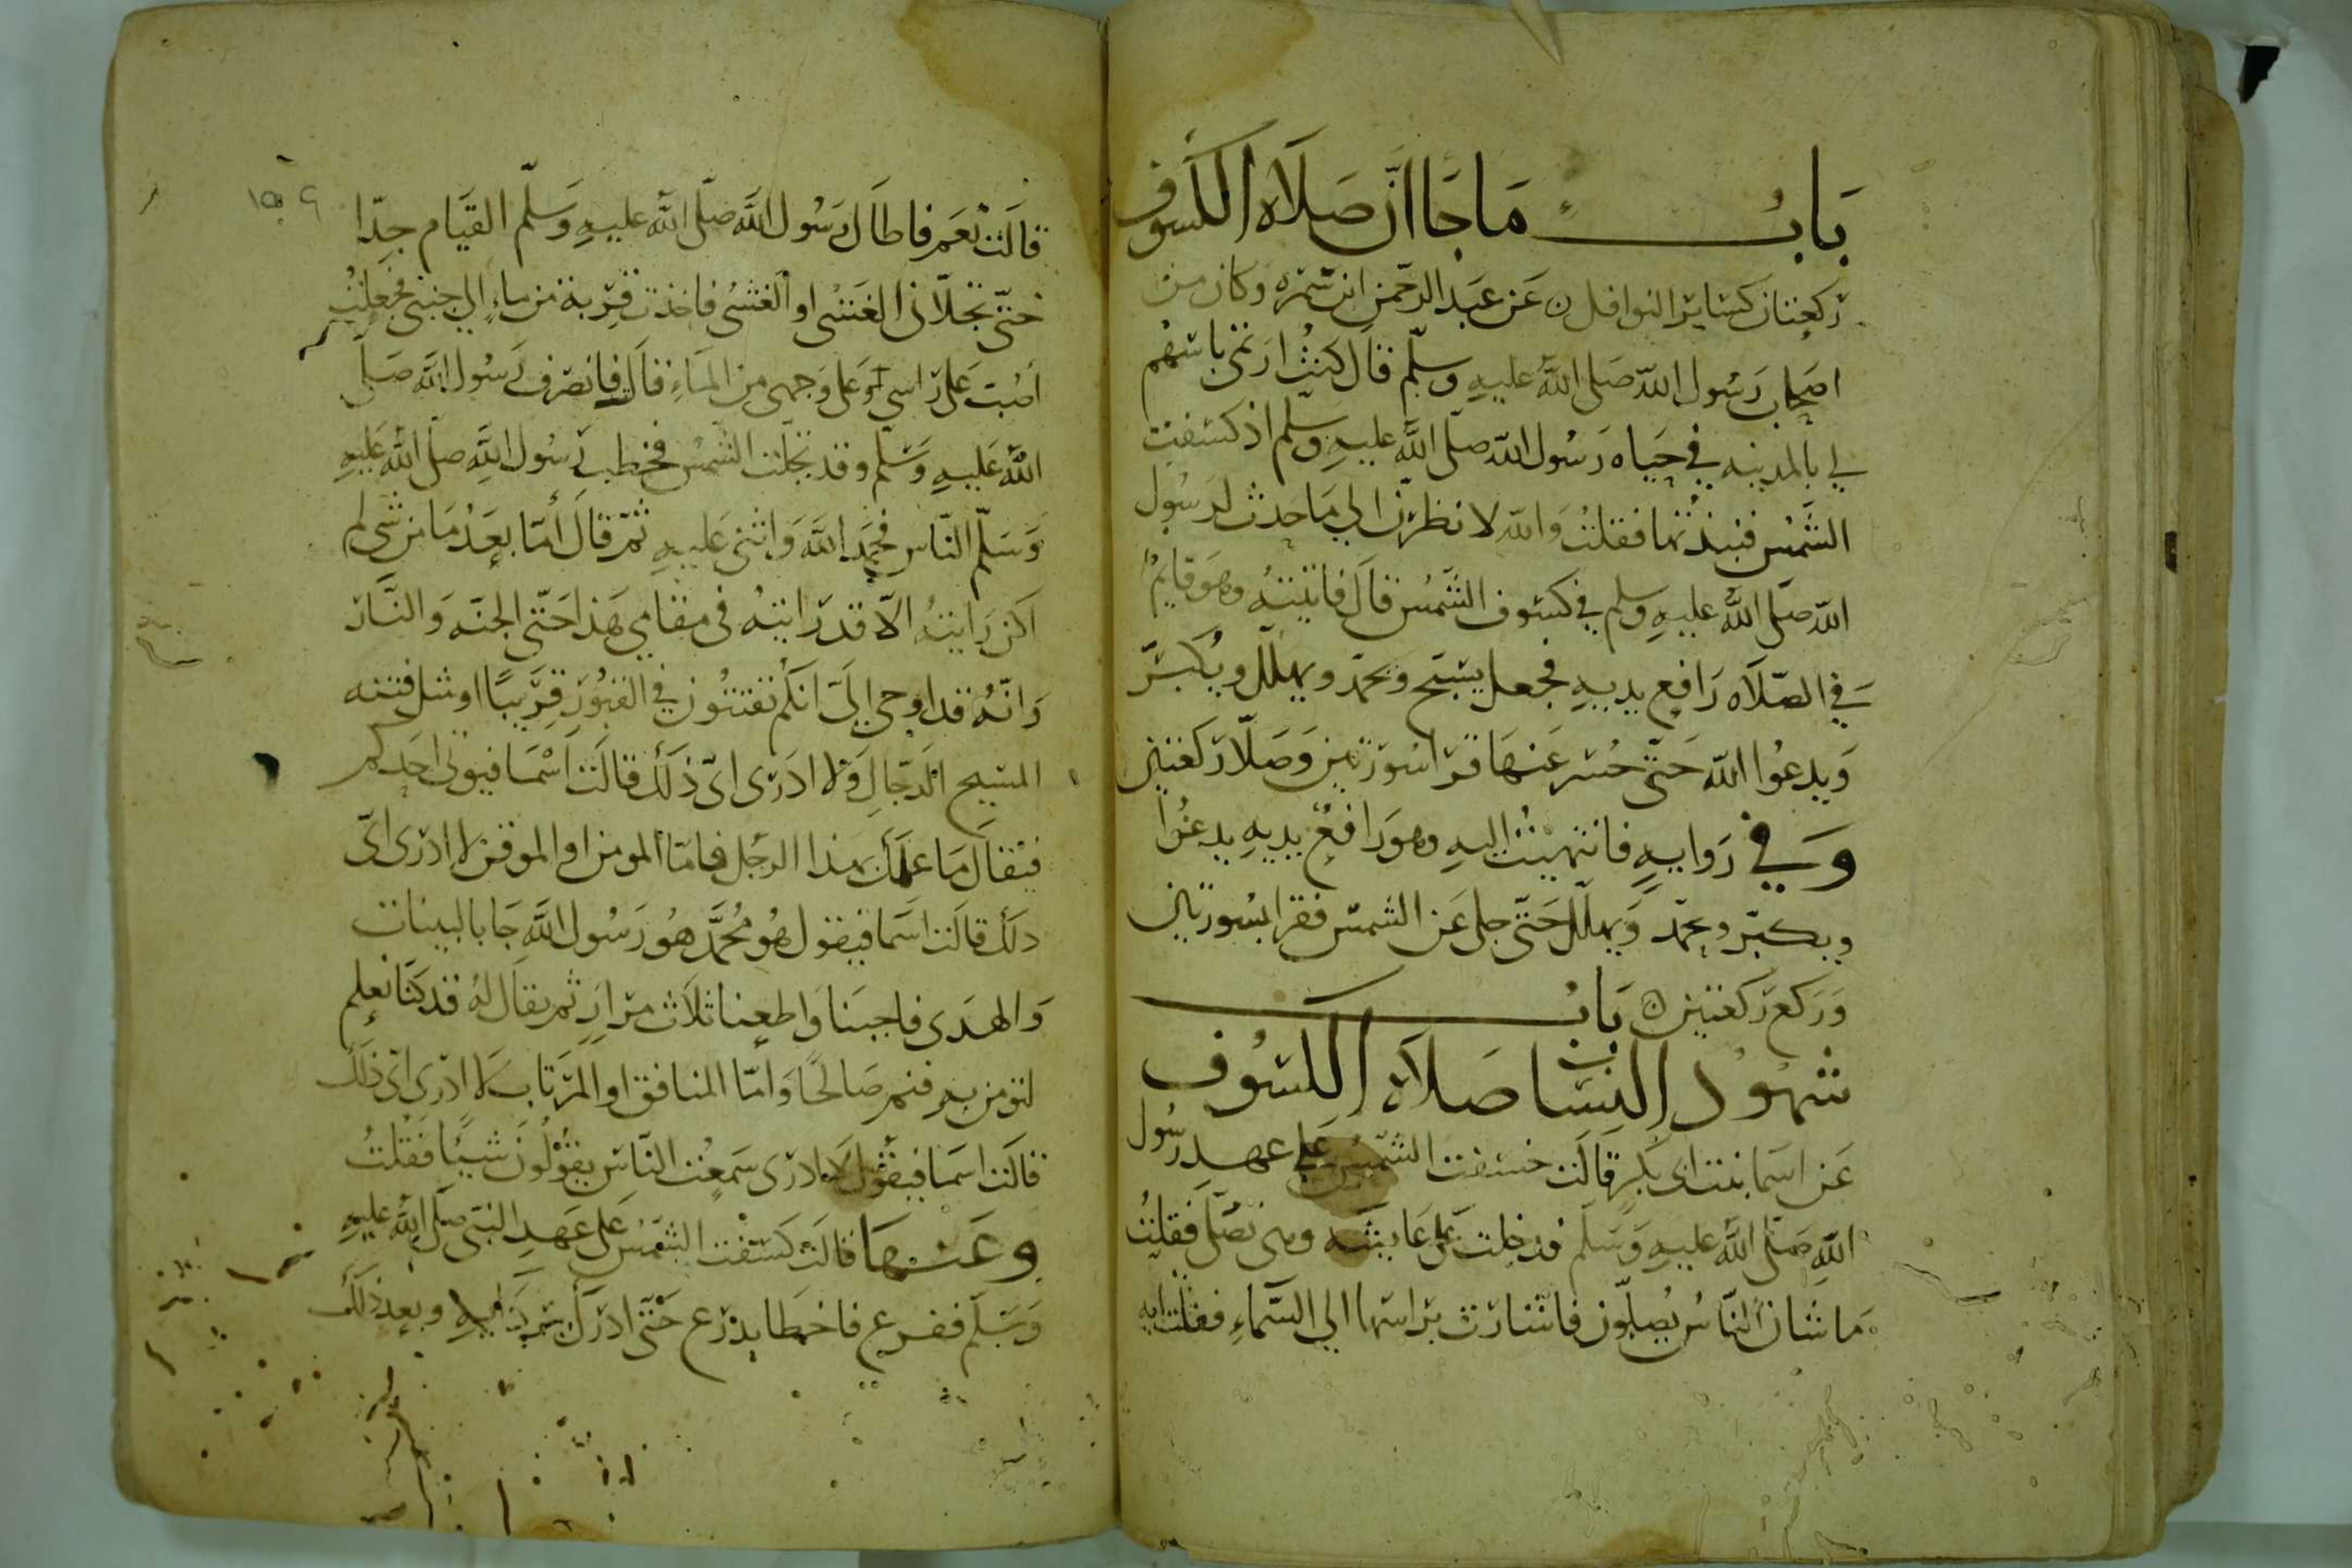 باب ما جا ان صلاه الكسوف
ركعتان كساير النوافل ن عن عبد الرحمن ابن سمره وكان من
اصحاب رسول الله صلى الله عليه وسلم قال كنت ارتمي باسهم
لي بالمدينه في حياه رسول الله صلى الله عليه وسلم اذ كسفت
الشمس فنبذتها فقلت والله لانظرن الي ما حدث لرسول
الله صلى الله عليه وسلم في كسوف الشمس قال فاتيته وهو قايم
في الصلاه رافع يديه فجعل يسبح ويحمد ويهلل ويكبر
ويدعوا الله حتى حسر عنها قرا سورتين وصلا ركعتين
وفي روايه فانتهيت اليه وهو رافع يديه يدعوا
ويكبر ويحمد ويهلل حتى جلى عن الشمس فقرا بسورتين
وركع ركعتين ن باب
شهود النسا صلاه الكسوف
عن اسما بنت ابي بكر قالت خسفت الشمس على عهد رسول
الله صلى الله عليه وسلم فدخلت على عايشه وهي تصلي فقلت
ما شان الناس يصلون فاشارت براسها الي السماء فقلت ايه
١٥٩
قالت نعم فاطال رسول الله صلى الله عليه وسلم القيام جدا
حتى تجلاني الغشي او الغشي فاخذت قربة من ماء الي جنبي فجعلت
اصب على راسي او على وجهي من الماء قال فانصرف رسول الله صلى
الله عليه وسلم وقد تجلت الشمس فخطب رسول الله صلى الله عليه
وسلم الناس فحمد الله واثنى عليه ثم قال أما بعد ما من شي لم
اكن رايته الا قد رايته في مقامي هذا حتى الجنه والنار
وانه قد اوحي الي انكم تفتنون في القبور قريبا او مثل فتنه
المسيح الدجال ولا ادرى اى ذلك قالت اسما فيوتى احدكم
فيقال ما علمك بهذا الرجل فاما المومن او الموقن لا ادرى اى
ذلك قالت اسما فيقول هو محمد هو رسول الله جا بالبينات
والهدى فاجبنا واطعنا ثلاث مرار ثم يقال له قد كنا نعلم
لتومن به فنم صالحا واما المنافق او المرتاب لا ادرى اى ذلك
قالت اسما فيقول لا ادرى سمعت الناس يقولون شيئا فقلت
وعنها قالت كسفت الشمس على عهد النبي صلى الله عليه
وسلم ففزع فاخطا بدرع حتى ادرك بردايه وبعد ذلك